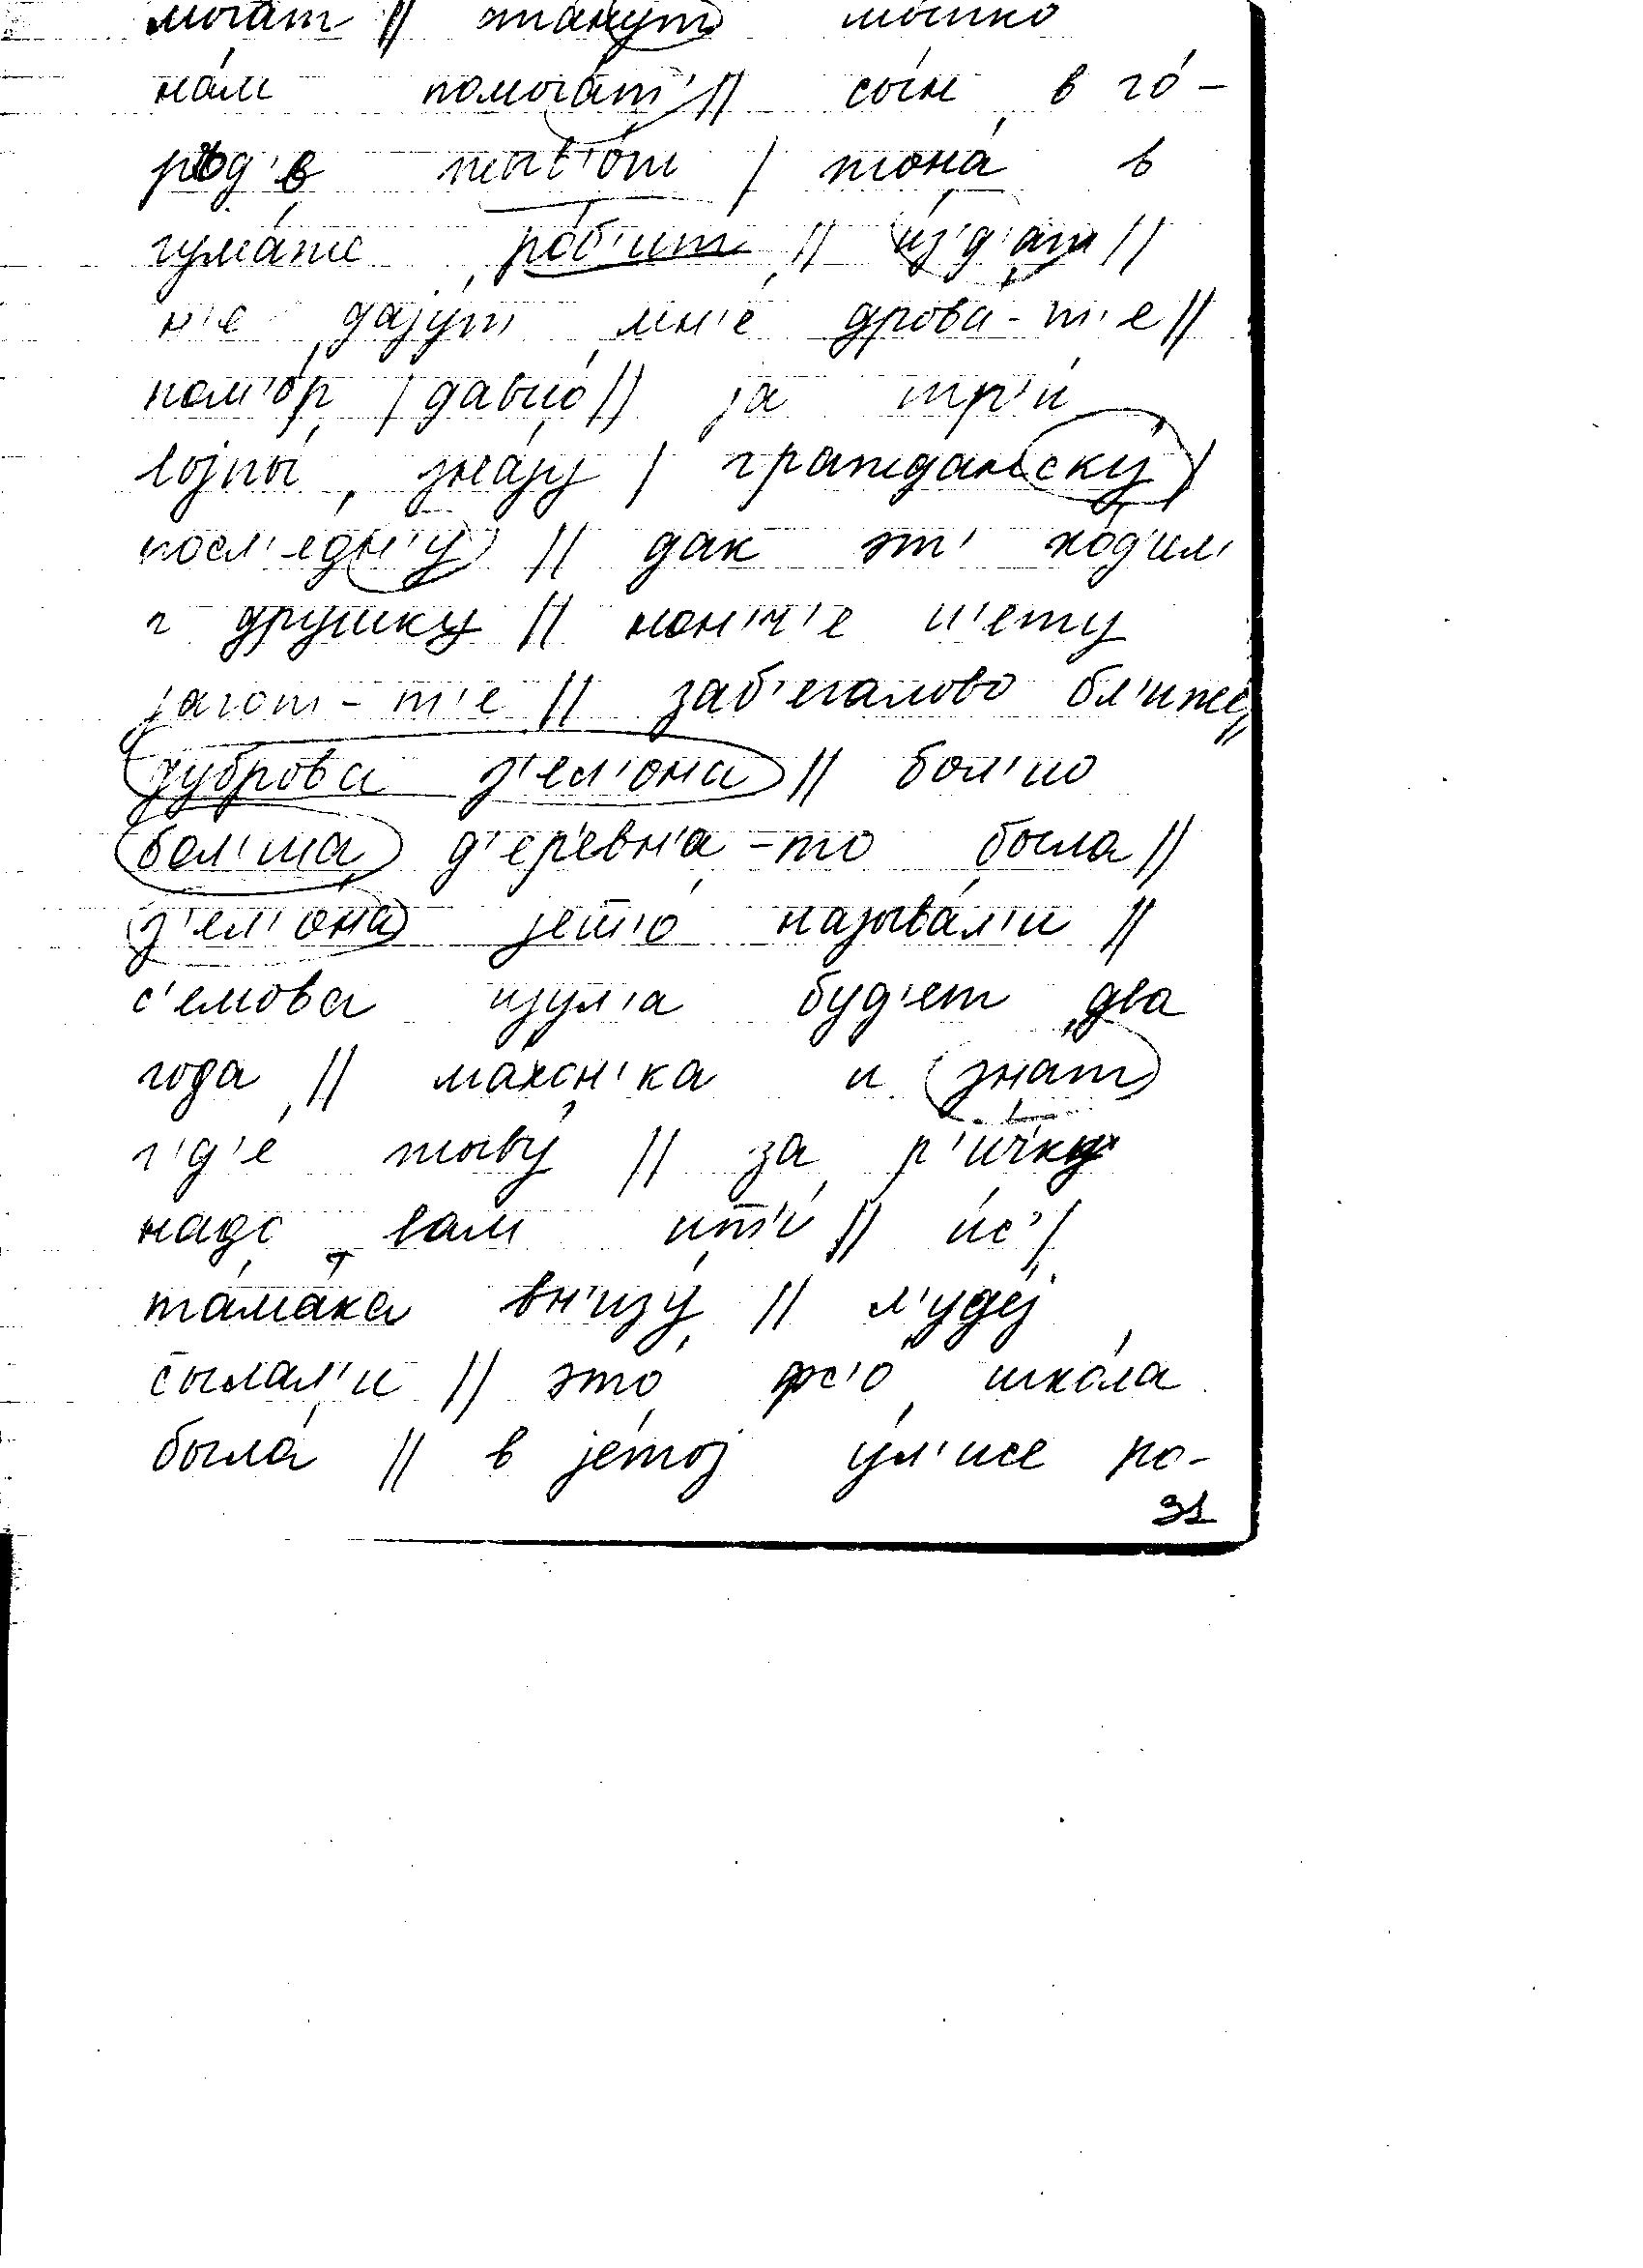 могат // станут мошко
на́м помога́т' // сы́н в го́-
род'е жыв'о́т / жона́ в
гума́ге ро́б'ит // и́з'д'ат //
н'е даjу́т мн'е́ дрова́-т'е //
пом'о́р / давно́ // jа тр'и́
воjны́ зна́jу / гражданску́ /
посл'едн'у // дак эт' ход'ил'
г дружку // нон'ч'е н'ету
jагот-т'е // заб'егалово бл'иже //
дуброва з'ел'она // бол'но
бол'ша д'ер'евн'а-то была //
з'ел'она jет'о́ называ́л'и //
с'емова иjул'а буд'ет два
года // махон'ка и знат
г'д'е́ жыву́ // за р'и́чку
надо вам ит'т'и́ // и́с' /
та́ма́ка вн'изу́ // л'уде́j
сылал'и // э́то фс'о́ шко́ла
была́ // в jе́тоj у́л'ице ро-
91